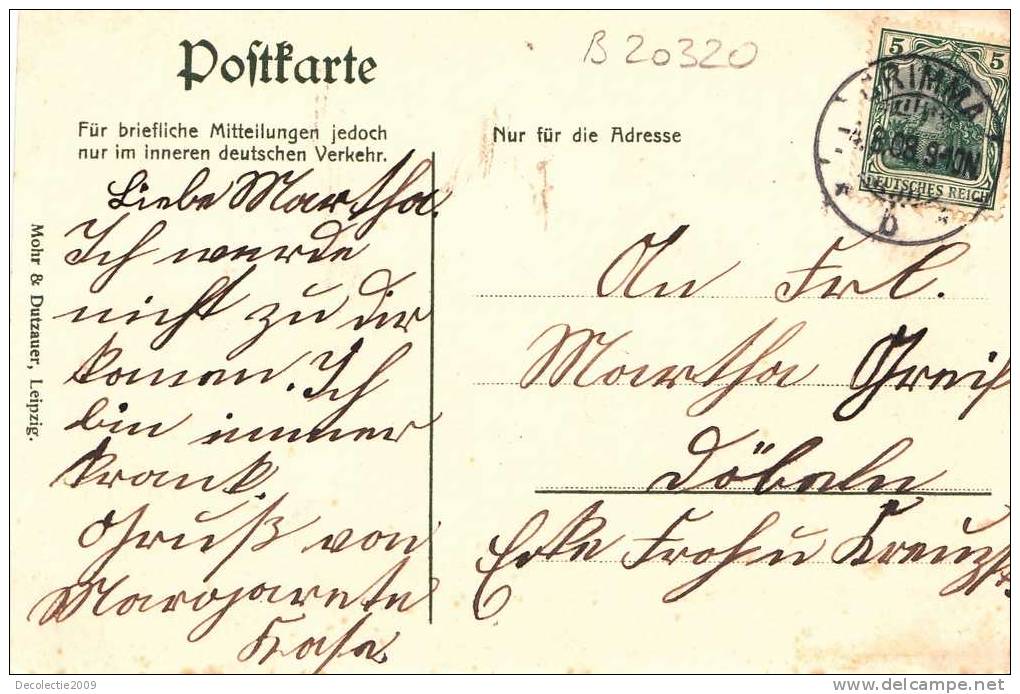 Postkarte
B 20320
Für briefliche Mitteilungen jedoch
nur im inneren deutschen Verkehr.
Nur für die Adresse
5 5
DEUTSCHES REICH
GRIMMA
8.08.9-10N
b
Liebe Martha.
Ich werde
nicht zu dir
komen. Ich
bin immer
krank.
Gruß von
Margarete
An Frl.
Martha Greif
Döbeln
Ecke Froh-u Kreuzstr
Mohr & Dutzauer, Leipzig.
Decolectie2009
delcampe.net